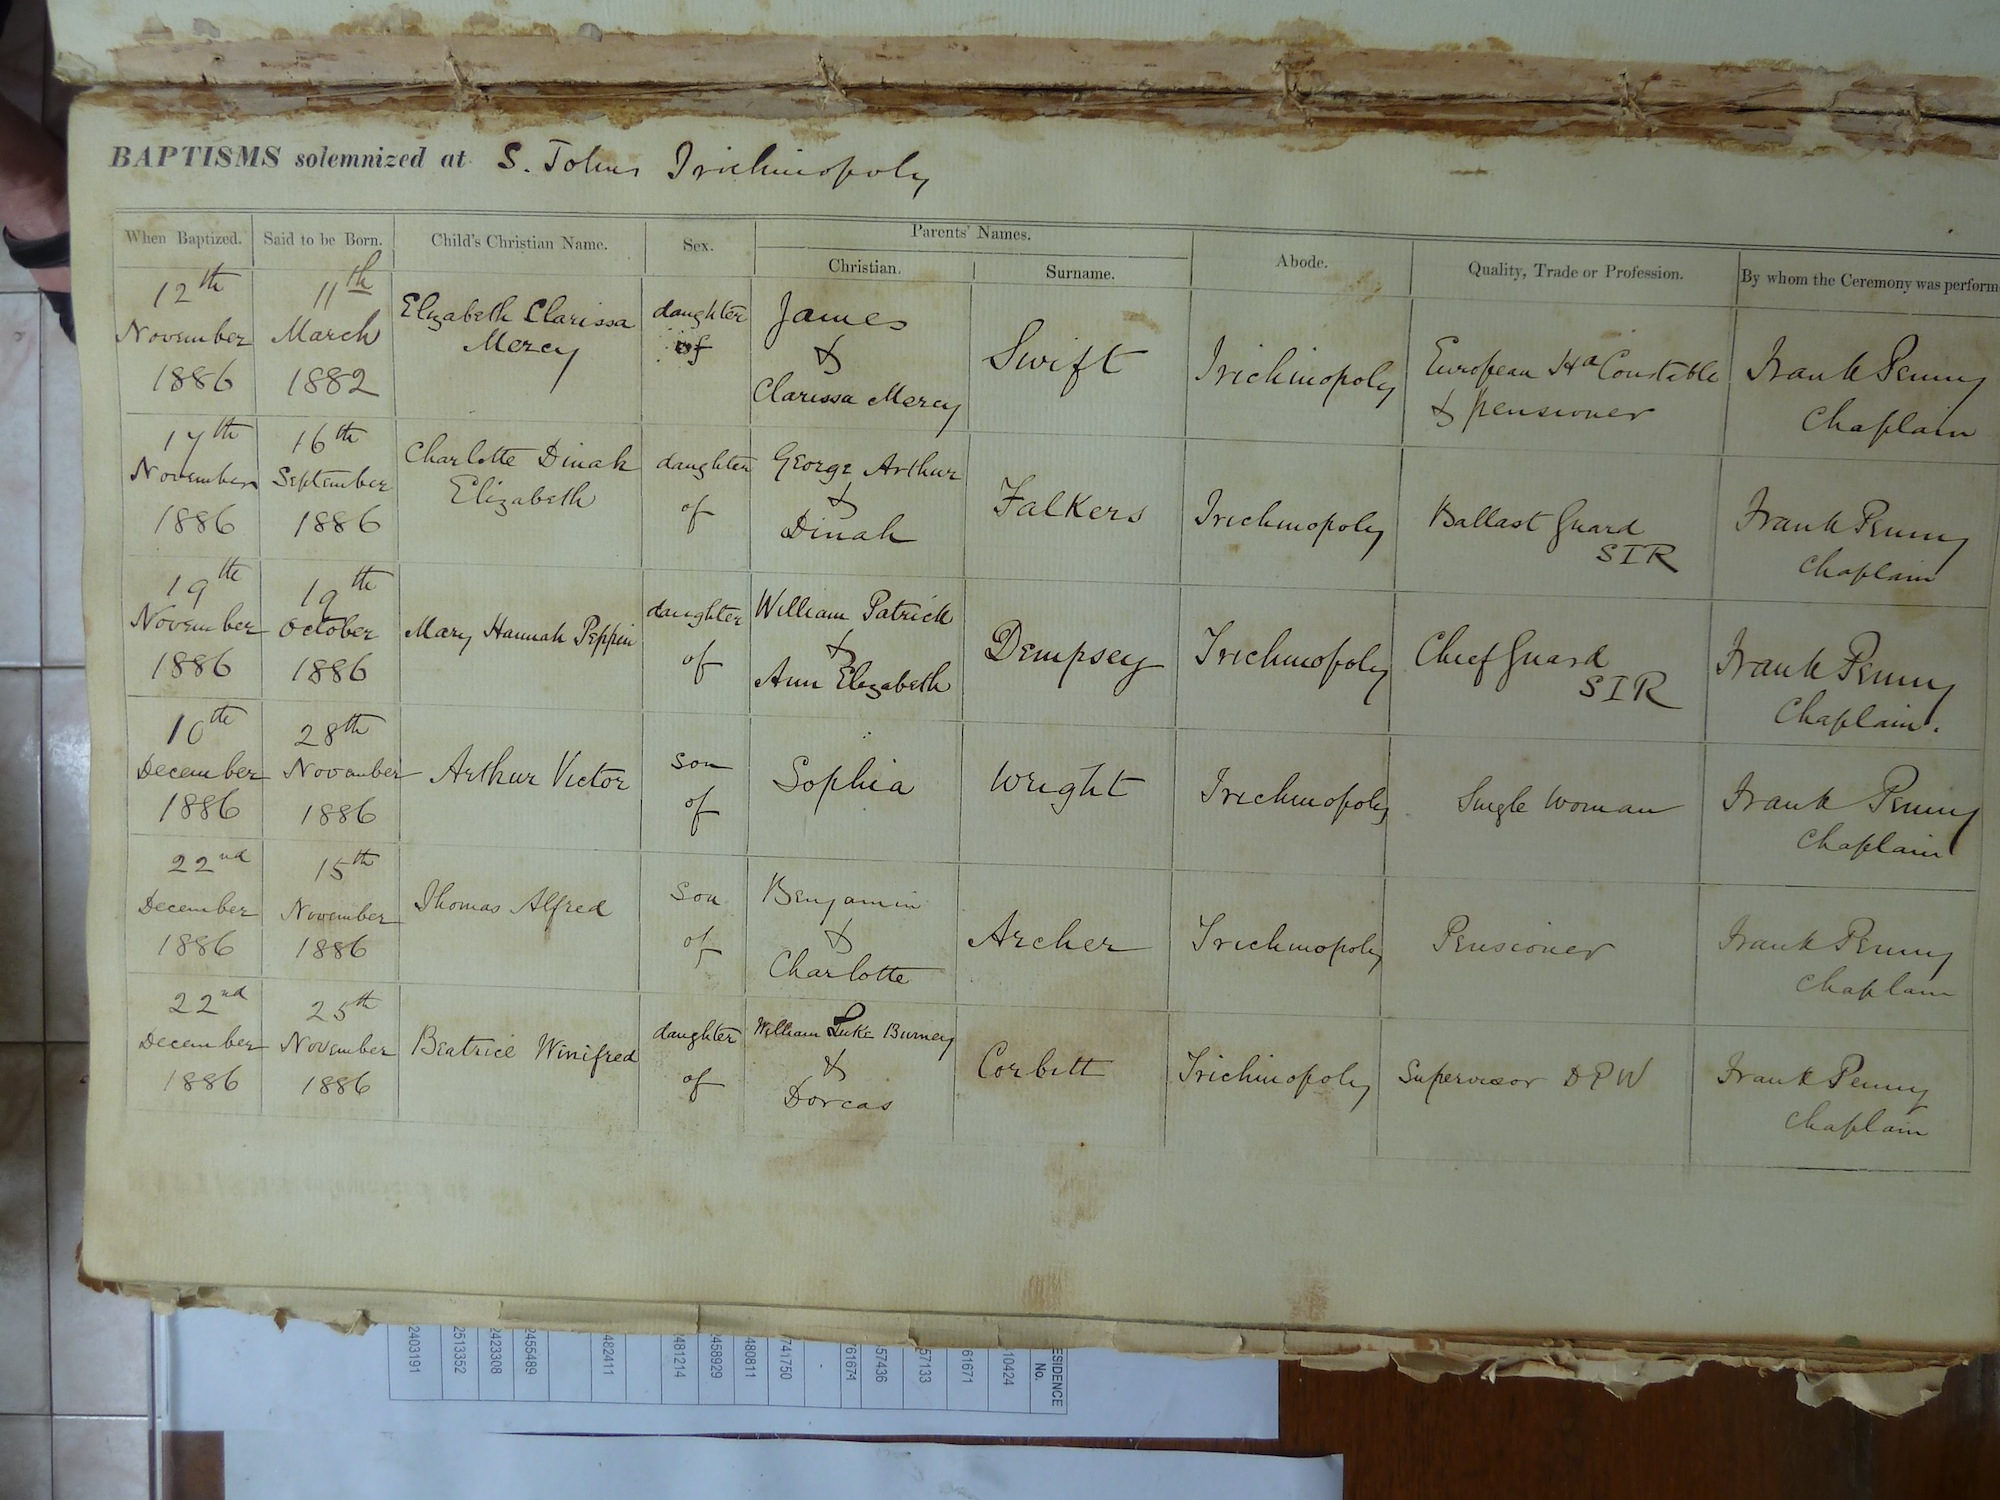 BAPTISMS solemnized at S. Johns Trichinopoly
When Baptized. Said to be Born. Child's Christian Name. Sex. Parents' Names. Abode. Quality, Trade or Profession. By whom the Ceremony was perform
Christian. Surname.
12th 11th Elizabeth Clarissa daughter James
November March Mercy of & Swift Trichinopoly European Hd Constable Frank Penny
1886 1882 Clarissa Mercy & pensioner Chaplain
17th 16th Charlotte Dinah daughter George Arthur
November September Elizabeth of & Falkers Trichinopoly Ballast Guard Frank Penny
1886 1886 Dinah SIR Chaplain
19th 19th daughter William Patrick
November October Mary Hannah Peppin of & Dempsey Trichinopoly Chief Guard Frank Penny
1886 1886 Ann Elizabeth SIR Chaplain.
10th 28th son
December November Arthur Victor of Sophia Wright Trichinopoly Single Woman Frank Penny
1886 1886 Chaplain
22nd 15th son Benjamin
December November Thomas Alfred of & Archer Trichinopoly Pensioner Frank Penny
1886 1886 Charlotte Chaplain
22nd 25th daughter William Luke Burney
December November Beatrice Winifred of & Corbett Trichinopoly Supervisor DPW Frank Penny
1886 1886 Dorcas Chaplain
ESIDENCE No.
10424
61671
57133
57436
761671
741750
480811
458929
481214
482411
2455489
2423308
2513352
2403191